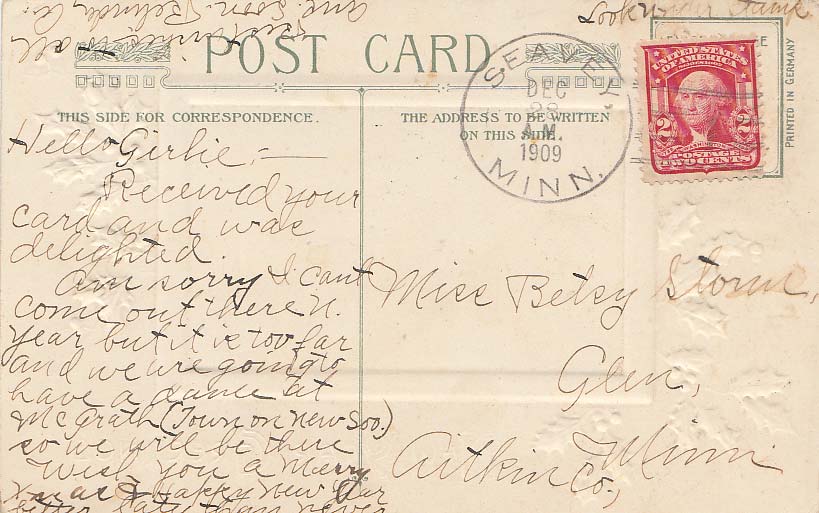 Look under stamp
POST CARD
THIS SIDE FOR CORRESPONDENCE.
THE ADDRESS TO BE WRITTEN
ON THIS SIDE.
PRINTED IN GERMANY
SEAVEY
DEC
28
A.M.
1909
MINN.
UNITED STATES
OF AMERICA
2 2
POSTAGE
TWO CENTS
Hello Girlie,—
Received your
card and was
delighted.
Am sorry I cant
come out there N.
Year but it is too far
and we are going to
have a dance at
McGrath (Town on new Soo.)
so we will be there
Wish you a Merry
Xmas & Happy New Year
better late than never
Best wishes to all
and Soon.
Miss Betsy Storm,
Glen,
Aitkin Co., Minn.